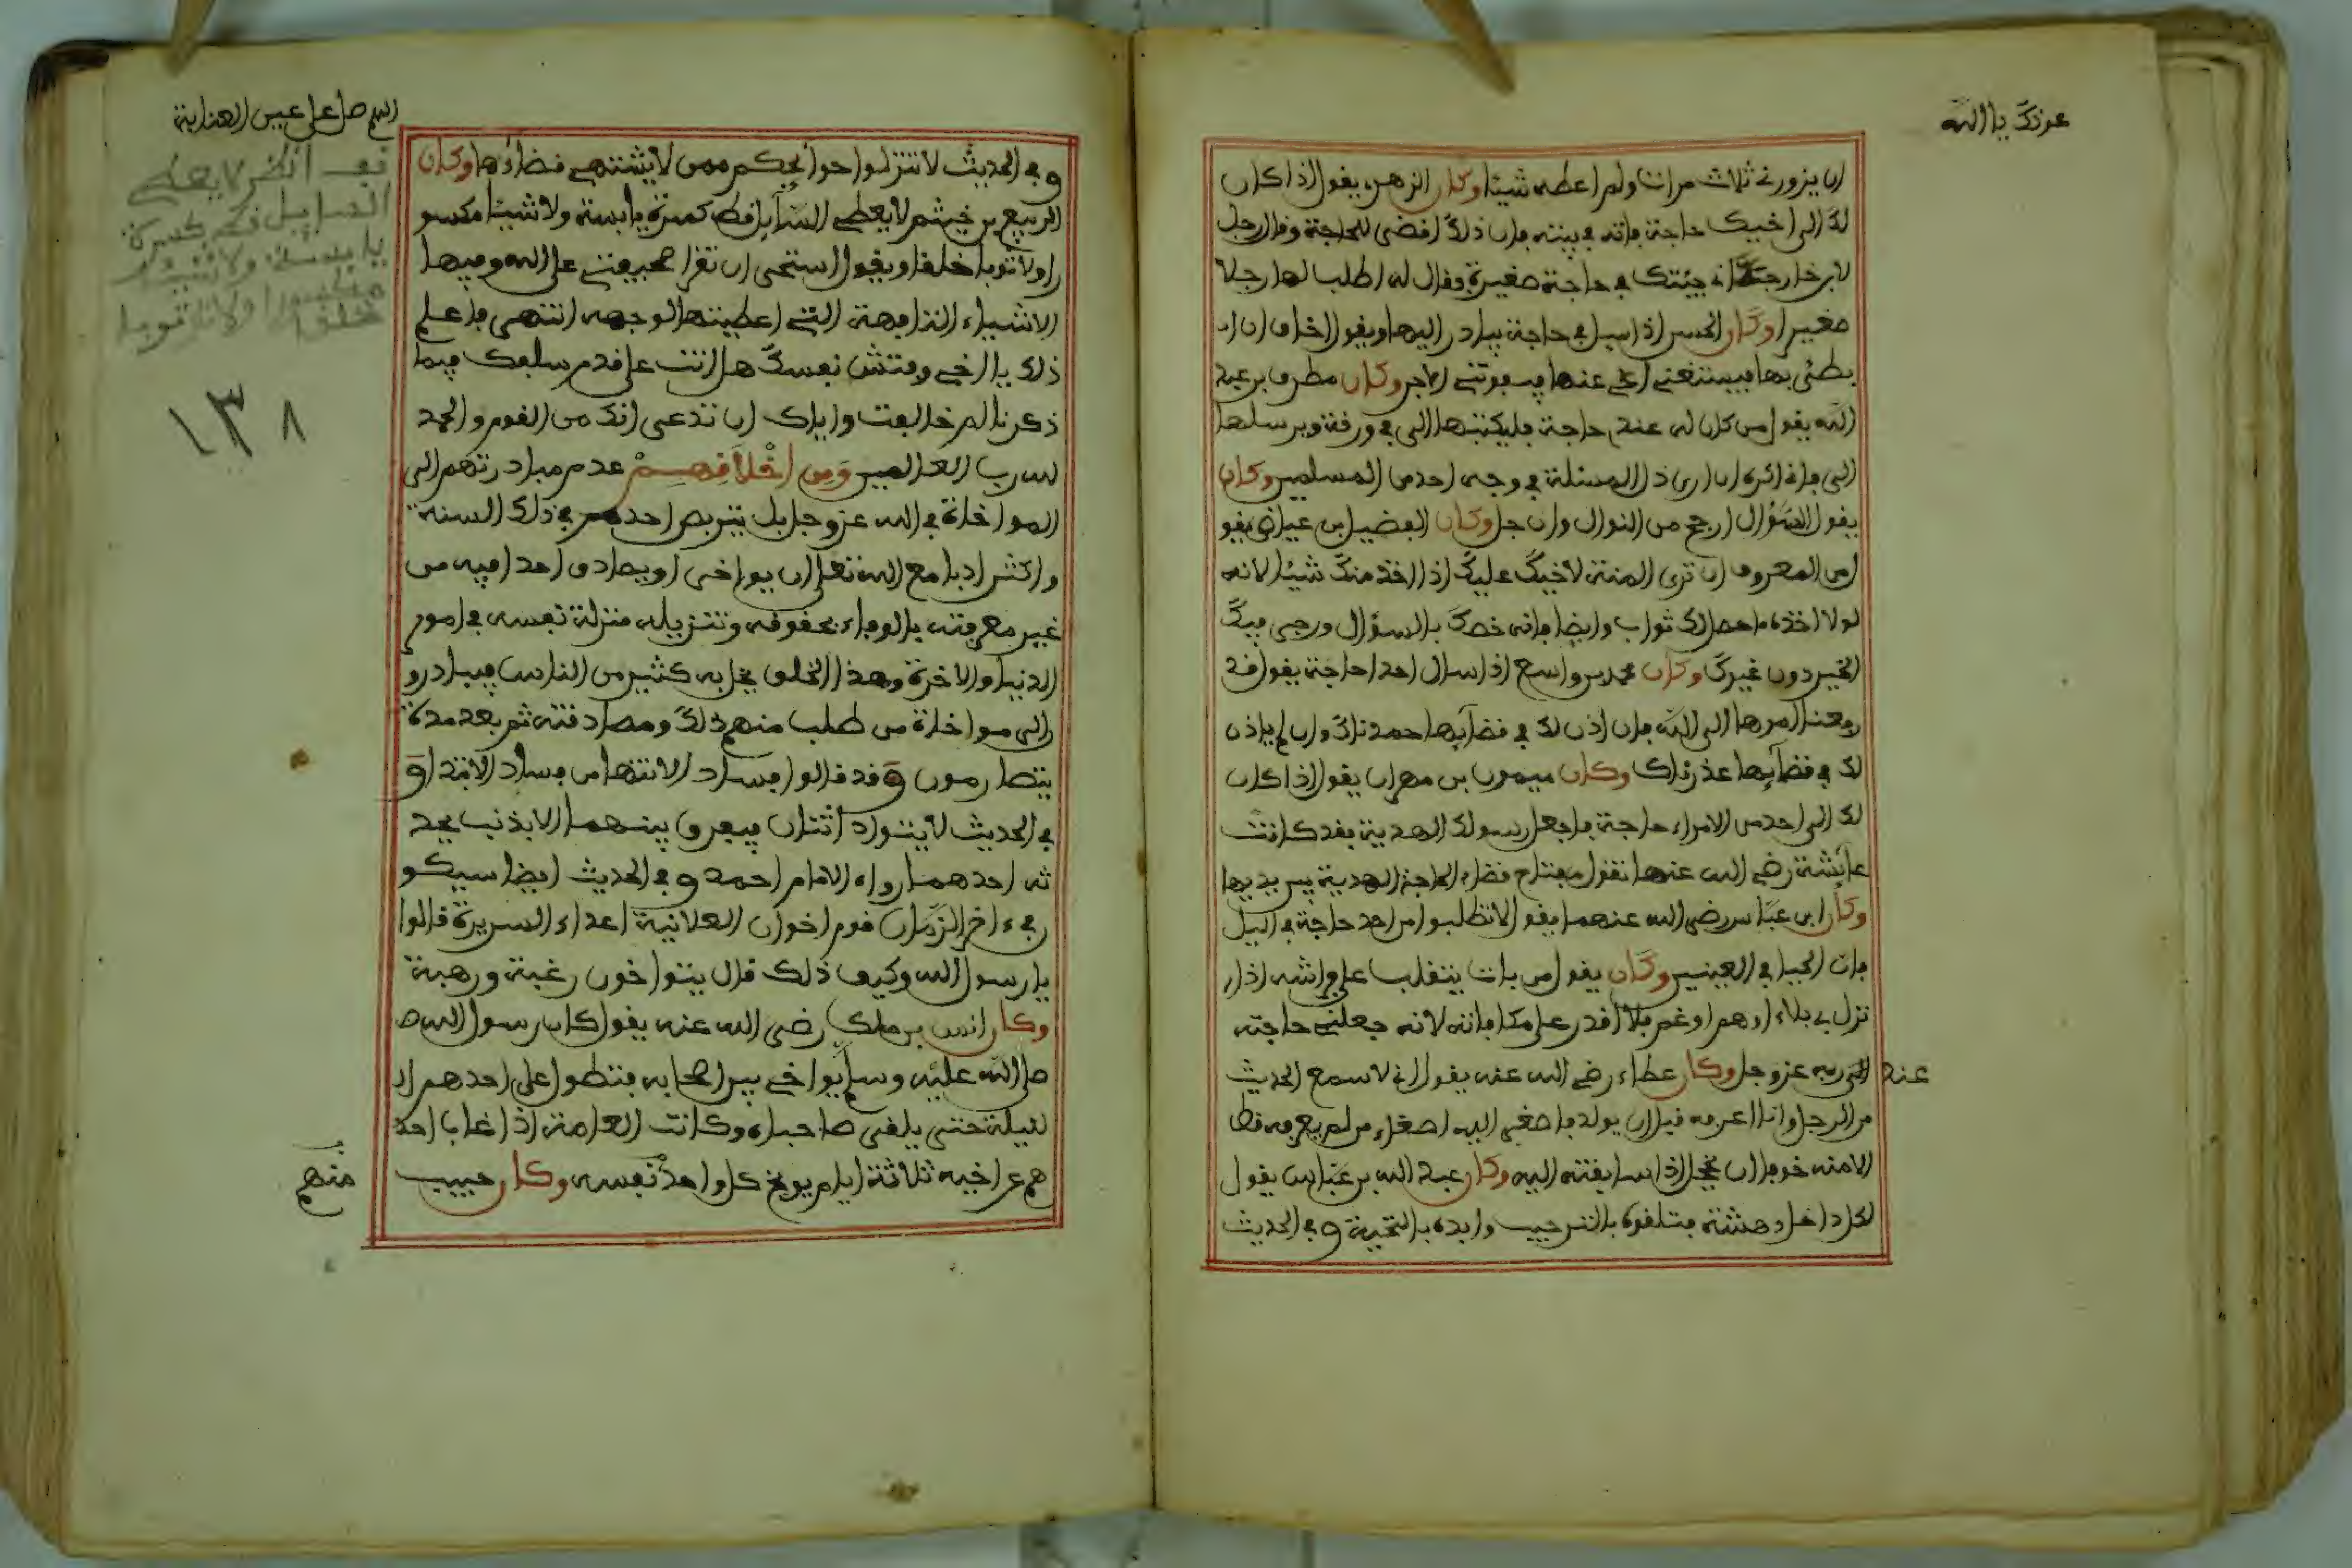 عونك يا الله
ان يزورني ثلاث مرات ولم اعطه شيئا وكان الزهري يقول اذا كان
لك الى اخيك حاجة فاته في بيته فان ذلك اقضى للحاجة وقال رجل
لابن خارجة اني جيئتك في حاجة صغيرة وقال له اطلب لها رجلا
صغيرا وكان الحسن اذا سيل في حاجة يبادر اليها ويقول اخاف ان ان
بطئ بها فيستغني اخي عنها فيفوتني الاجر وكان مطرف بن عبد
الله يقول من كان له عندي حاجة فليكتبها الى في ورقة ويرسلها
الى فاني اكره ان ارى ذل المسئلة في وجه احد من المسلمين وكان
يقول السؤال ارجح من النوال وان جل وكان الفضيل بن عياض يقو
ل من المعروف ان ترى المنة لاخيك عليك اذا اخذ منك شيئا لانه
لولا اخذه ما حصل لك ثواب وايضا فانه خصك بالسؤال ورجى فيك
الخير دون غيرك وكان محمد بن واسع اذا سال احدا حاجة يقول قد
رفعنا امرها الى الله فان اذن لك في قضآيها حمدناك وان لم ياذن
لك في قضآيها عذرناك وكان ميمون بن مهران يقول اذا كان
لك الى احد من الامراء حاجة فاجعل رسولك الهدية فقد كانت
عآئشة رضي الله عنها تقول مفتاح قضاء الحاجة الهدية بين يديها
وكان ابن عباس رضى الله عنهما يقول لا تطلبوا من احد حاجة في اليل
فان الحيا في العينين وكان يقول من بات يتقلب على فراشه اذا ر
نزل بي بلاء او هم او غم فلا اقدر على مكافاته لانه جعلني حاجته
عند الى ربه عز وجل وكان عطاء رضي الله عنه يقول اني لاسمع الحديث
من الرجل وانا اعرفه قبل ان يولد فاصغي اليه اصغاء من لم يعرفه قط
الا منه خوفا ان يخجل اذا سابقته اليه وكان عبد الله بن عباس يقول
لكل داخل دهشة فتلقوه بالترحيب وابدوه بالتحية وفي الحديث
اللهم صل على عين العناية
وفي الحديث لا تنزلوا حوائجكم ممن لا يشتهي قضاءها وكان
الربيع بن خيثم لا يعطي السآيل قط كسرة يابسة ولا شيئا مكسو
را ولا ثوبا خلقا ويقول استحى ان تقرا صحيفتي على الله وفيها
الاشياء التافهة التي اعطيتها لوجهه انتهى فاعلم
ذلك يا اخي وفتش نفسك هل انت على قدم سلفك فيما
ذكرنا ام خالفت واياك ان تدعى انك من القوم والحمد
لله رب العالمين ومن اخلاقهم عدم مبادرتهم الى
المواخاة في الله عز وجل بل يتربص احدهم في ذلك السنة
واكثر ادبا مع الله تعلى ان يواخى او يصادق احدا فيه من
غير معرفته بالوفاء بحقوقه وتنزيله منزلة نفسه في امور
الدنيا والاخرة وهذا الخلق يخل به كثير من الناس فيبادرو
الى مواخاة من طلب منهم ذلك ومصادقته ثم بعد مدة
يتصارمون وقد قالوا فساد الانتها من فساد الابتدا و
في الحديث لا يتواد اثنان فيفرق بينهما الا بذنب يحد
ثه احدهما رواه الامام احمد وفي الحديث ايضا سيكو
ن في ءاخر الزمان قوم اخوان العلانية اعداء السريرة قالوا
يا رسول الله وكيف ذلك قال يتواخون رغبة ورهبة
وكان انس بن ملك رضى الله عنه يقول كان رسول الله ص
صلى الله عليه وسلم يواخي بين اصحابه فتطول على احدهم ال
لليلة حتى يلقى صاحباه وكانت العامة اذا غاب احد
هم عن اخيه ثلاثة ايام يوبخ كل واحد نفسه وكان حبيب
منهم
قف انظر لا يعطي
السايل قط كسرة
يابسة ولا شيئا
مكسورا ولا ثوبا
خلقا
١٣٨